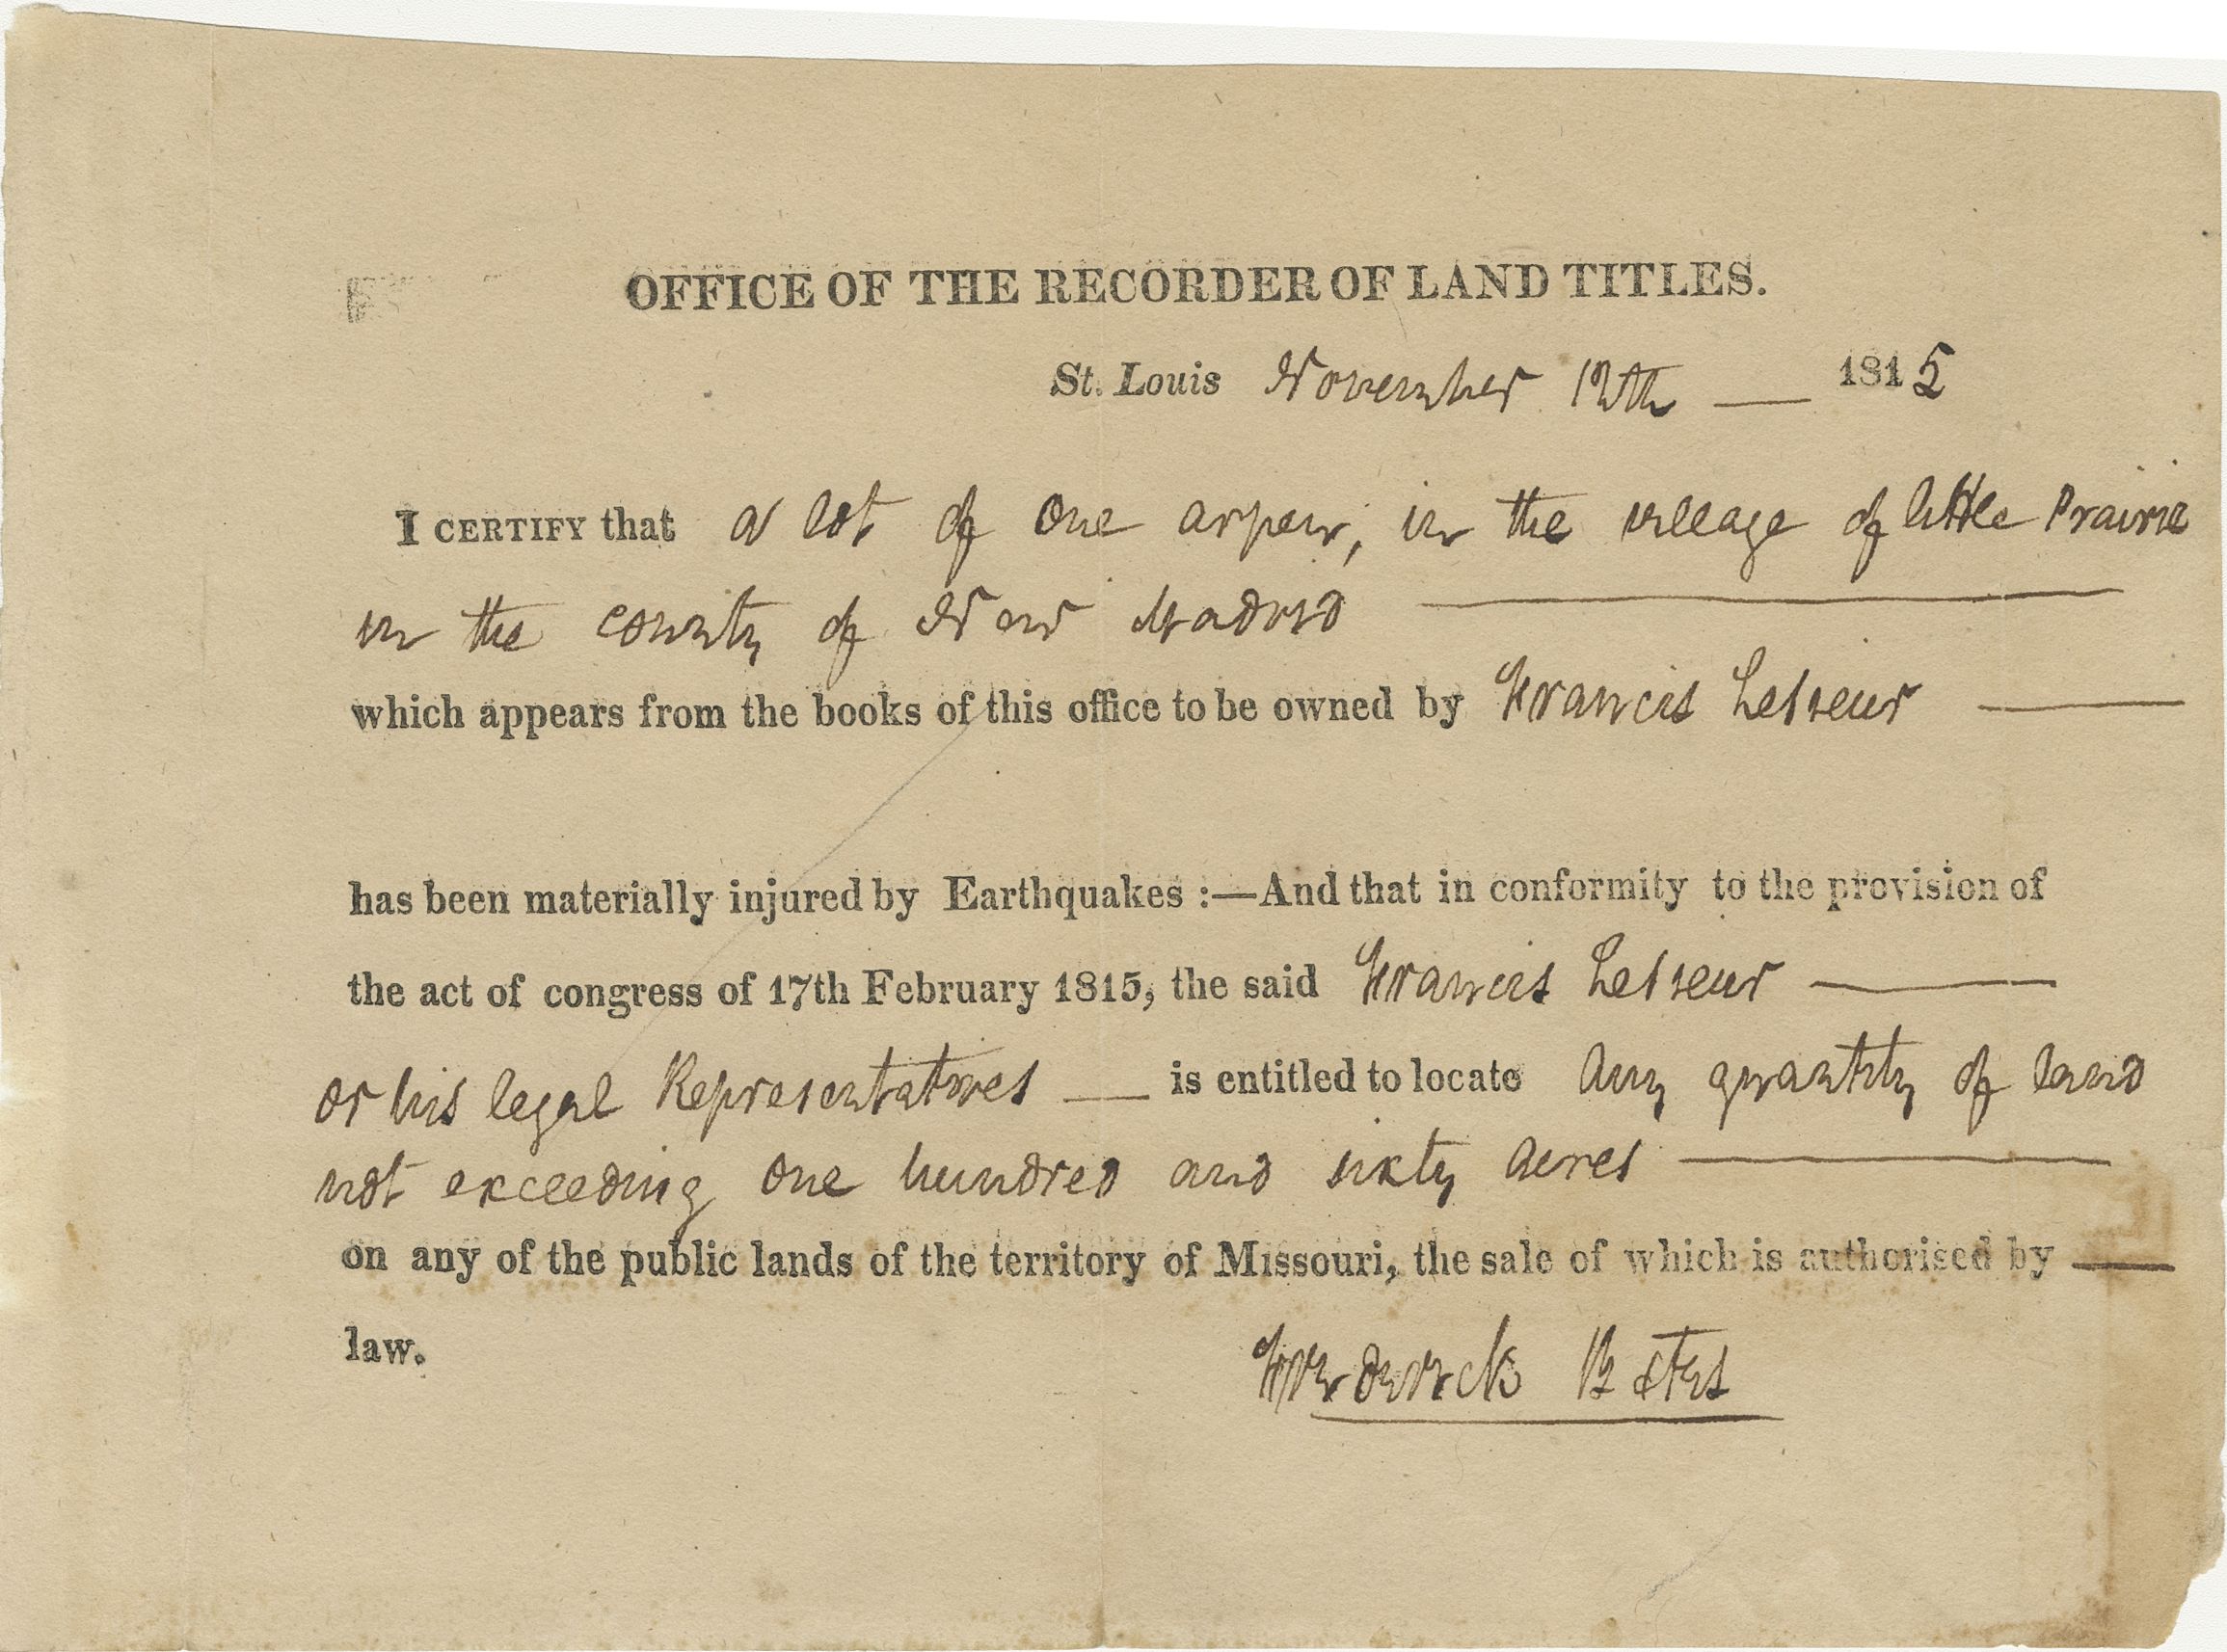 OFFICE OF THE RECORDER OF LAND TITLES.
St. Louis November 13th — 1815
I CERTIFY that a lot of one arpent, in the village of little Prairie
in the county of New Madrid —
which appears from the books of this office to be owned by Francis Lesieur —
has been materially injured by Earthquakes :—And that in conformity to the provision of
the act of congress of 17th February 1815, the said Francis Lesieur —
or his legal Representatives — is entitled to locate any quantity of land
not exceeding one hundred and sixty acres —
on any of the public lands of the territory of Missouri, the sale of which is authorised by —
law.
Frederick Bates